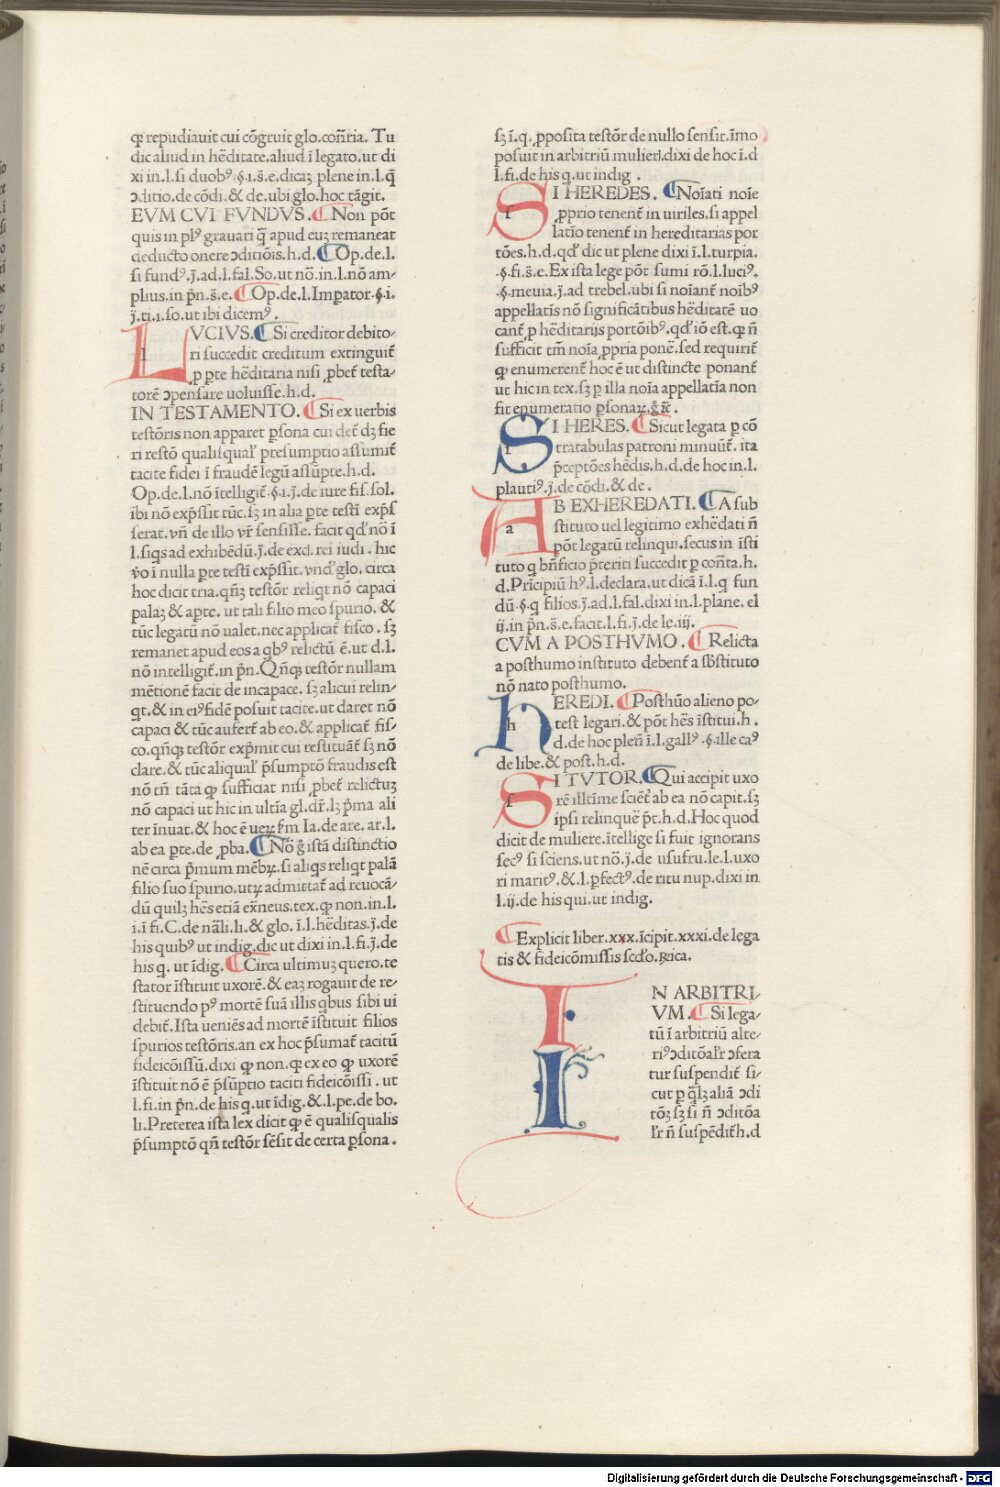 ꝙ repudiauit cui cõgruit glo.coñria. Tu
dic aliud in hẽditate.aliud ĩ legato.ut di
xi in.l.si duobꝰ.§.i.s̃.e.dicaȝ plene in.l.q̃
ↄditio.de cõdi.& de.ubi glo.hoc tãgit.
EVM CVI FVNDVS. Non põt
quis in plꝰ grauari q̃ apud euȝ remaneat
deducto onere ↄditiõis.h.d. Op.de.l.
si fundꝰ.j̃.ad.l.fal.So.ut nõ.in.l.nõ am/
plius.in p̃n.s̃.e. Op.de.l.Imꝑator.§.i.
j̃.ti.i.so.ut ibi dicemꝰ.
LVCIVS. Si creditor debito
ri succedit creditum extinguit̃
ꝓ ꝑte hẽditaria nisi ꝓbet̃ testa/
torẽ ↄpensare uoluisse.h.d.
IN TESTAMENTO. Si ex uerbis
testõris non apparet ꝑsona cui det̃ dȝ fie
ri restõ qualisqual' presumptio assumit̃
tacite fidei ĩ fraudẽ legũ assũpte.h.d.
Op.de.l.nõ ĩtelligit̃.§.i.j̃.de iure fis.sol.
ibi nõ exp̃ssit tũc.sȝ in alia ꝑte testĩ exp̃s
serat.vñ de illo vr̃ sensisse.facit qd' nõ ĩ
l.siqs ad exhibẽdũ.j̃.de excl.rei iudi. hic
v̉o ĩ nulla ꝑte testĩ exp̃ssit.vnd' glo. circa
hoc dicit tria.qñȝ testõr reliqt nõ capaci
palaȝ & aꝑte. ut tali filio meo spurio. &
tũc legatũ nõ ualet.nec applicat̃ fisco. sȝ
remanet apud eos a qbꝰ relictũ ẽ.ut d.l.
nõ intelligit̃.in p̃n.Qñqȝ testõr nullam
mẽtionẽ facit de incapace. sȝ alicui relin/
qt.& in eiꝰ fidẽ posuit tacite.ut daret nõ
capaci & tũc aufert̃ ab eo.& applicat̃ fis/
co.qñqȝ testõr exp̃mit cui restituãt̃ sȝ nõ
clare.& tũc aliqual' p̃sumptõ fraudis est
nõ tñ tãta ꝙ sufficiat nisi ꝓbet̃ relictuȝ
nõ capaci ut hic in ultĩa gl.dr̃.lȝ p̃ma ali
ter ĩnuat.& hoc ẽ ueꝝ ẝm Ia.de are. ar.l.
ab ea ꝑte.de ꝓba. Nõ g̉ istã distinctio
nẽ circa p̃mum mẽbꝝ.si aliqs reliqt palã
filio suo spurio.utꝝ admittat̃ ad reuocã/
dũ quilȝ hẽs etiã exñeus.tex.ꝙ non.in.l.
i.ĩ fi.C.de nãli.li.& glo. ĩ.l.hẽditas.j̃.de
his quibꝰ ut indig.dic ut dixi in.l.fi.j̃.de
his q. ut ĩdig. Circa ultimuȝ quero.te
stator ĩstituit uxorẽ.& eaȝ rogauit de re/
stituendo pꝰ mortẽ suã illis qbus sibi ui
debit̃.Ista ueniẽs ad mortẽ ĩstituit filios
spurios testõris.an ex hoc p̃sumat̃ tacitũ
fideicõissũ.dixi ꝙ non.ꝙ ex eo ꝙ uxorẽ
ĩstituit nõ ẽ p̃sũptio taciti fideicõissi . ut
l.fi.in p̃n.de his q.ut ĩdig.&.l.pe.de bo.
li.Preterea ista lex dicit ꝙ ẽ qualisqualis
p̃sumptõ qñ testõr sẽsit de certa ꝑsona.
sȝ ĩ.q.ꝓposita testõr de nullo sensit.ĩmo
posuit in arbitriũ mulierĩ.dixi de hoc ĩ.d
l.fi.de his q.ut indig .
SI HEREDES. Noĩati noĩe
ꝓprio tenent̃ in uiriles.si appel
latio tenent̃ in hereditarias por
tões.h.d.qd' dic ut plene dixi ĩ.l.turpia.
.§.fi.s̃.e.Ex ista lege põt sumi rõ.l.luciꝰ.
.§.meuia.j̃.ad trebel.ubi si noĩant̃ noibꝰ
appellatis nõ significãtibus hẽditatẽ uo
cant̃ ꝓ hẽditarijs portõibꝰ.qd' iõ est.ꝙ ñ
sufficit tm̃ noĩa ꝓpria ponẽ.sed requirit̃
ꝙ enumerent̃ hoc ẽ ut distincte ponant̃
ut hic in tex.sȝ ꝑ illa noĩa appellatĩa non
fit enumeratio ꝑsonaꝝ.g̉ r̃c.
SI HERES. Sicut legata ꝑ cõ
tratabulas patroni minuũt̃. ita
p̃ceptões hẽdis.h.d.de hoc in.l.
plautiꝰ.j̃.de cõdi.& de .
AB EXHEREDATI. A sub
stituto uel legitimo exhẽdati ñ
põt legatũ relinqui.secus in ĩsti
tuto q bñficio p̃teriti succedit ꝑ coñta.h.
d.Prĩcipiũ hꝰ.l.declara.ut dicã ĩ.l.q fun
dũ.§.q filios.j̃.ad.l.fal.dixi in.l.plane. el
ij.in p̃n.s̃.e.facit.l.fi.j̃.de le.iij.
CVM A POSTHVMO. Relicta
a posthumo instituto debent̃ a sb̃stituto
nõ nato posthumo.
hEREDI. Posthũo alieno po/
test legari.& põt hẽs ĩstitui.h .
d.de hoc pleñ ĩ.l.gallꝰ.§.ille caꝰ
de libe.& post.h.d.
SI TVTOR. Qui accipit uxo
rẽ illtĩme sciẽt̃ ab ea nõ capit.sȝ
ipsi relinquẽ p̃t.h.d.Hoc quod
dicit de muliere.ĩtellige si fuit ignorans
secꝰ si sciens.ut nõ.j̃.de usufru.le.l.uxo
ri maritꝰ.&.l.ꝑfectꝰ.de ritu nup.dixi in
l.ij.de his qui.ut indig.
Explicit liber.xxx.ĩcipit.xxxi.de lega
tis & fideicõmissis scd'o.ꝶica.
IN ARBITRI/
VM. Si lega/
tũ ĩ arbitriũ alte/
riꝰ ↄditõal'r ↄfera
tur suspendit̃ si/
cut ꝑ q̃lȝ aliã ↄdi
tõȝ sȝ si ñ ↄditõa
l'r ñ suspẽdit̃ h.d
Digitalisierung gefördert durch die Deutsche Forschungsgemeinschaft - DFG